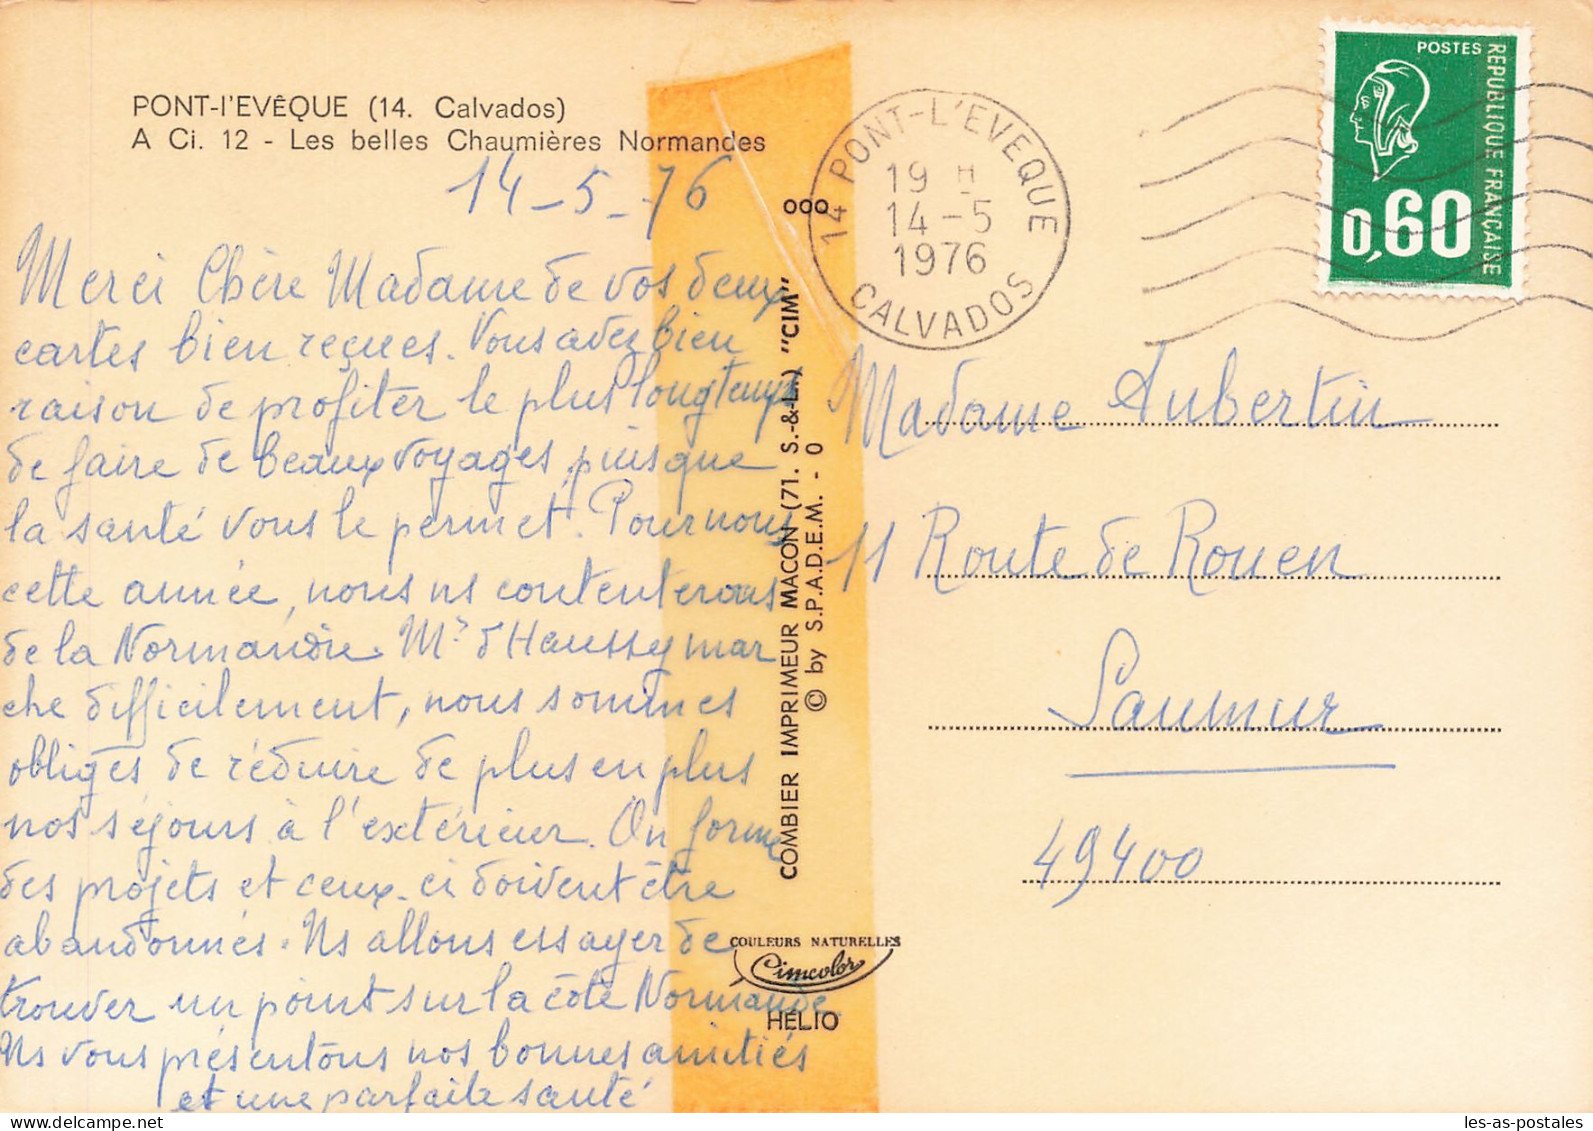 PONT-l'EVÊQUE (14. Calvados)
A Ci. 12 - Les belles Chaumières Normandes
14-5-76
Merci Chère Madame de vos deux
cartes bien reçues. Vous avez bien
raison de profiter le plus longtemps
de faire de beaux voyages, puisque
la santé vous le permet. Pour nous
cette année, nous ns contenterons
de la Normandie. Mr d'Haussy mar
che difficilement, nous sommes
obligés de réduire de plus en plus
nos séjours à l'extérieur. On forme
des projets et ceux-ci doivent être
abandonnés. Ns allons essayer de
trouver un point sur la côte Normande
Ns vous présentons nos bonnes amitiés
et une parfaite santé
ooo
COMBIER IMPRIMEUR MACON (71. S.-&-L.) "CIM"
© by S.P.A.D.E.M. - 0
COULEURS NATURELLES
Cimcolor
HÉLIO
14 PONT-L'EVEQUE
19 H
14-5
1976
CALVADOS
POSTES
REPUBLIQUE FRANÇAISE
0,60
Madame Aubertin
11 Route de Rouen
Saumur
49400
les-as-postales